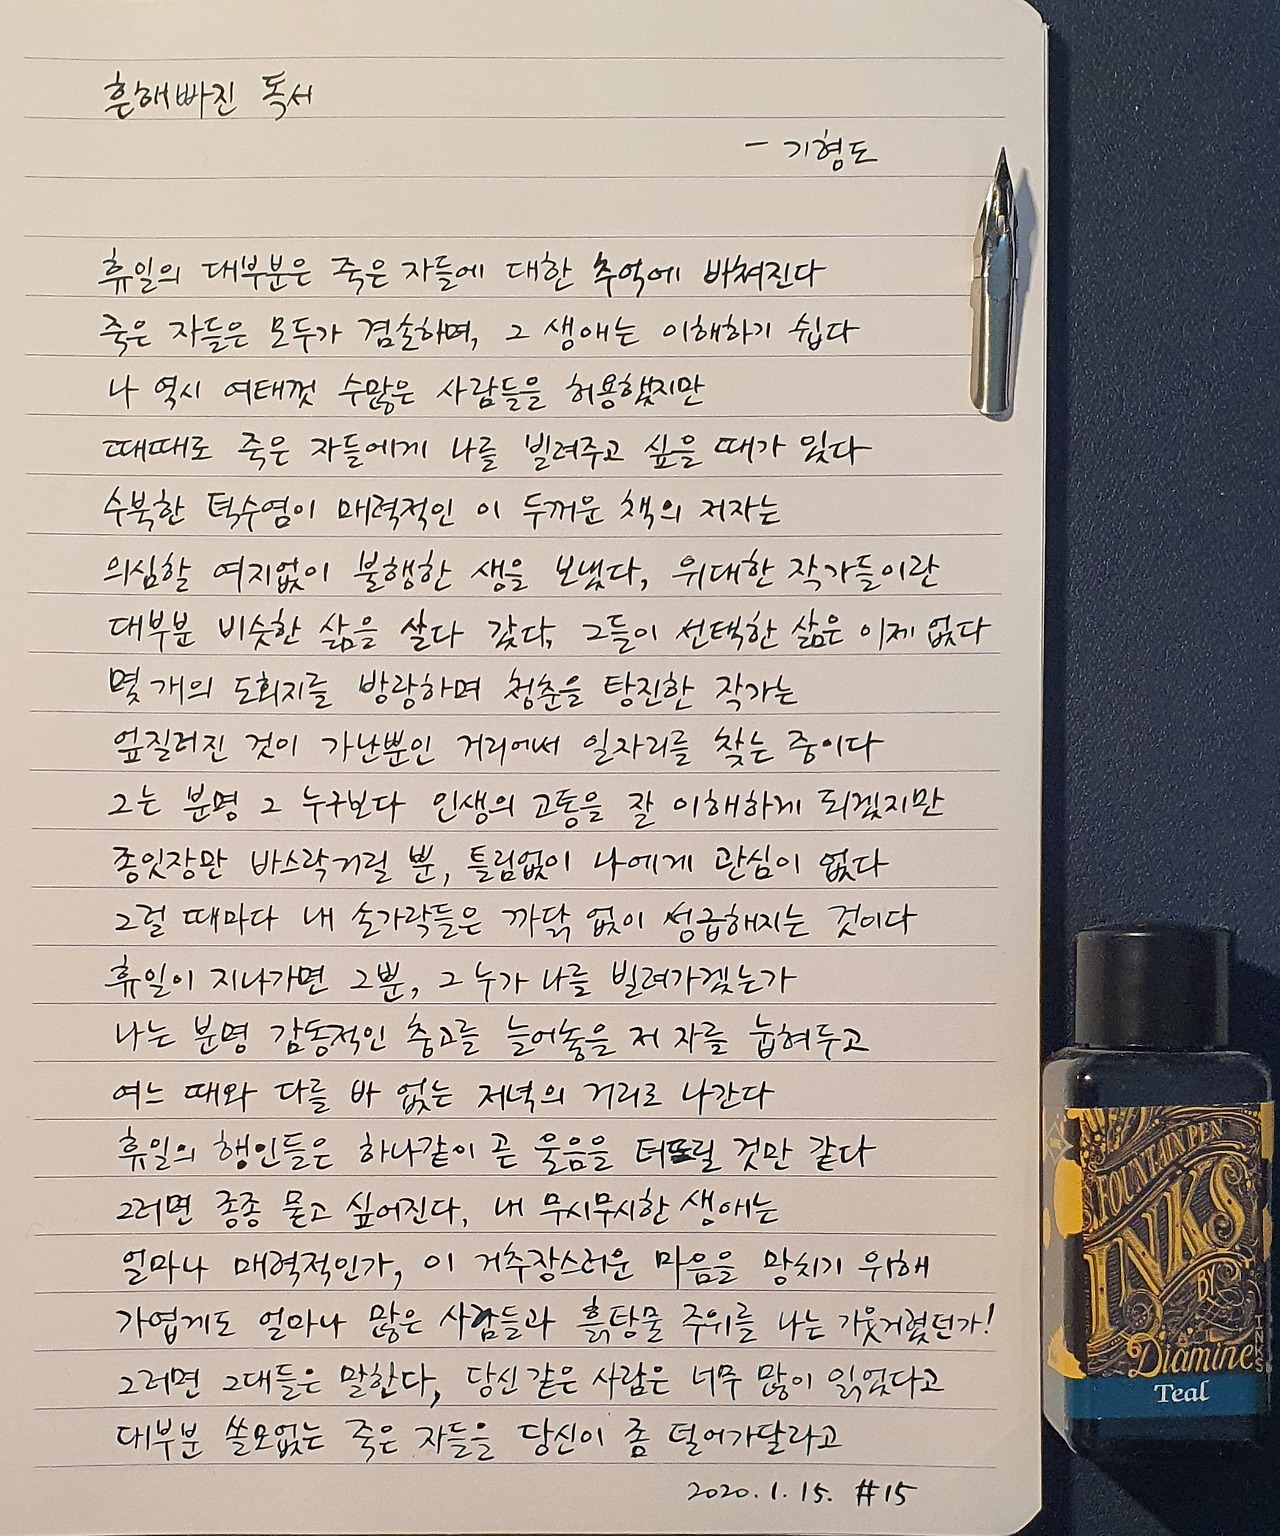 흔해빠진 독서
- 기형도
휴일의 대부분은 죽은 자들에 대한 추억에 바쳐진다
죽은 자들은 모두가 겸손하며, 그 생애는 이해하기 쉽다
나 역시 여태껏 수많은 사람들을 허용했지만
때때로 죽은 자들에게 나를 빌려주고 싶을 때가 있다
수북한 턱수염이 매력적인 이 두꺼운 책의 저자는
의심할 여지없이 불행한 생을 보냈다, 위대한 작가들이란
대부분 비슷한 삶을 살다 갔다, 그들이 선택한 삶은 이제 없다
몇 개의 도회지를 방랑하며 청춘을 탕진한 작가는
엎질러진 것이 가난뿐인 거리에서 일자리를 찾는 중이다
그는 분명 그 누구보다 인생의 고통을 잘 이해하게 되겠지만
종잇장만 바스락거릴 뿐, 틀림없이 나에게 관심이 없다
그럴 때마다 내 손가락들은 까닭 없이 성급해지는 것이다
휴일이 지나가면 그뿐, 그 누가 나를 빌려가겠는가
나는 분명 감동적인 충고를 늘어놓을 저 자를 눕혀두고
여느 때와 다를 바 없는 저녁의 거리로 나간다
휴일의 행인들은 하나같이 곧 울음을 터뜨릴 것만 같다
그러면 종종 묻고 싶어진다, 내 무시무시한 생애는
얼마나 매력적인가, 이 거추장스러운 마음을 망치기 위해
가엾게도 얼마나 많은 사람들과 흙탕물 주위를 나는 기웃거렸던가!
그러면 그대들은 말한다, 당신 같은 사람은 너무 많이 읽었다고
대부분 쓸모없는 죽은 자들을 당신이 좀 덜어가달라고
2020. 1. 15. #15
FOUNTAIN PEN
INKS
BY
Diamine
INKS
Teal